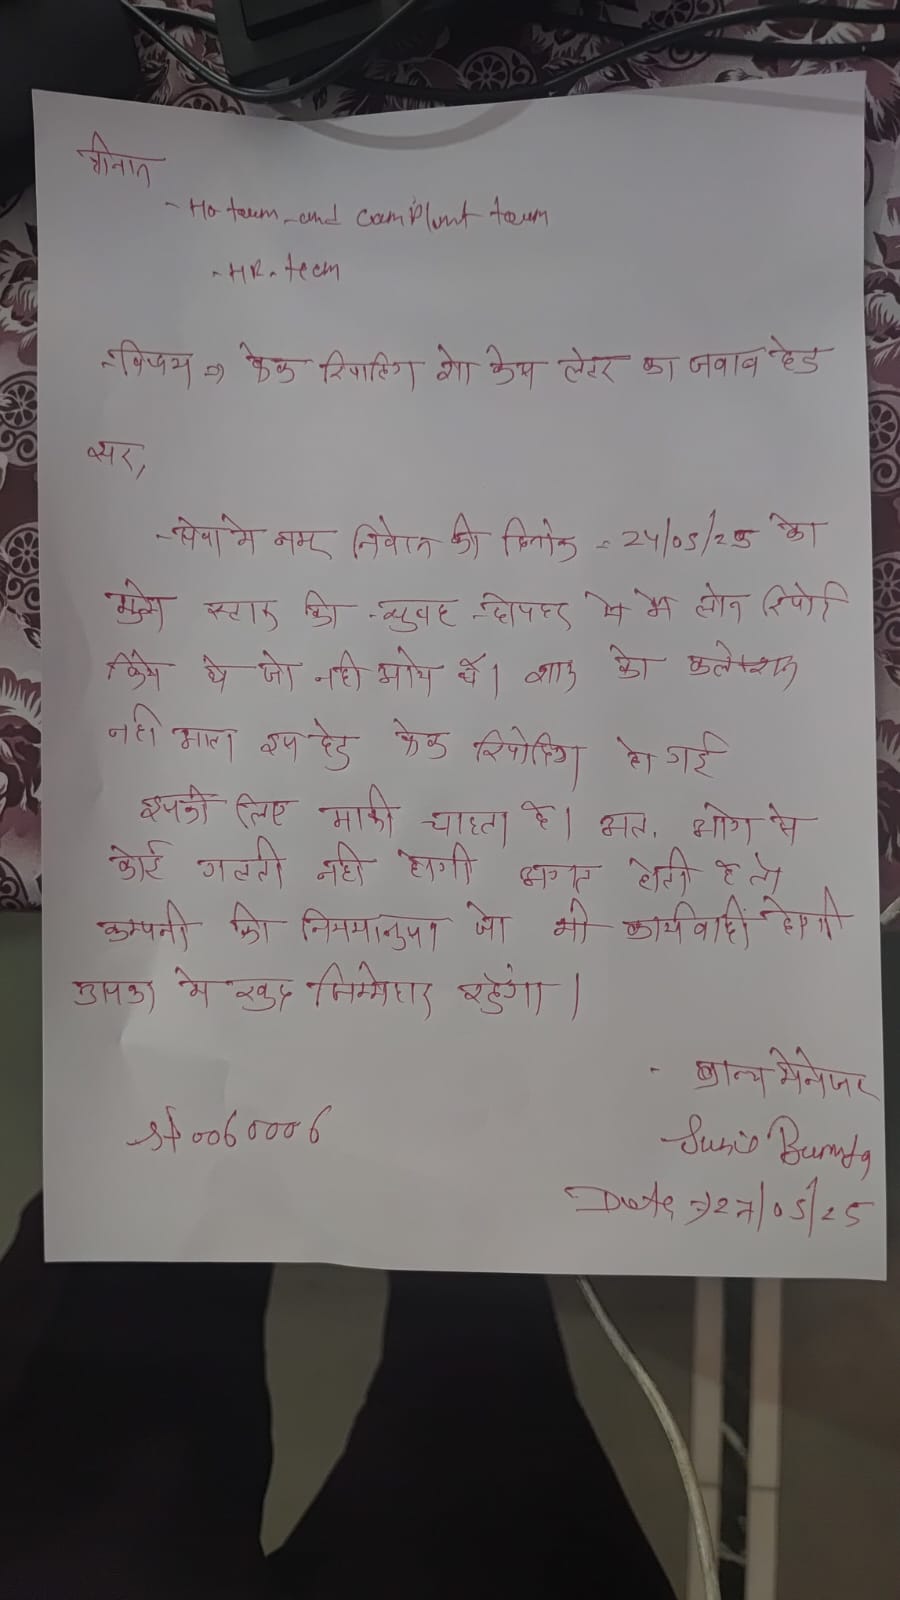 श्रीमान
- Ho team and Complaint team
- HR. team
- विषय => फेक रिपोर्टिंग शो केश लेटर का जवाब हेतु
सर,
- सेवा मे नम्र निवेदन की दिनांक = 24/05/25 को
मुझे स्टाफ की सुबह दोपहर मे मे लोन रिपोर्ट
किये थे जो नही आये थे। शाम को कलेक्शन
नही आला इस हेतु फेक रिपोर्टिंग हो गई
इसके लिए माफी चाहता है। अत. आगे से
कोई गलती नही होगी अगर होती है तो
कम्पनी की नियमानुसार जो भी कार्यवाही होगी
उसका मे खुद जिम्मेदार रहुंगा।
- ब्रान्च मेनेजर
0060006
Date => 27/05/25